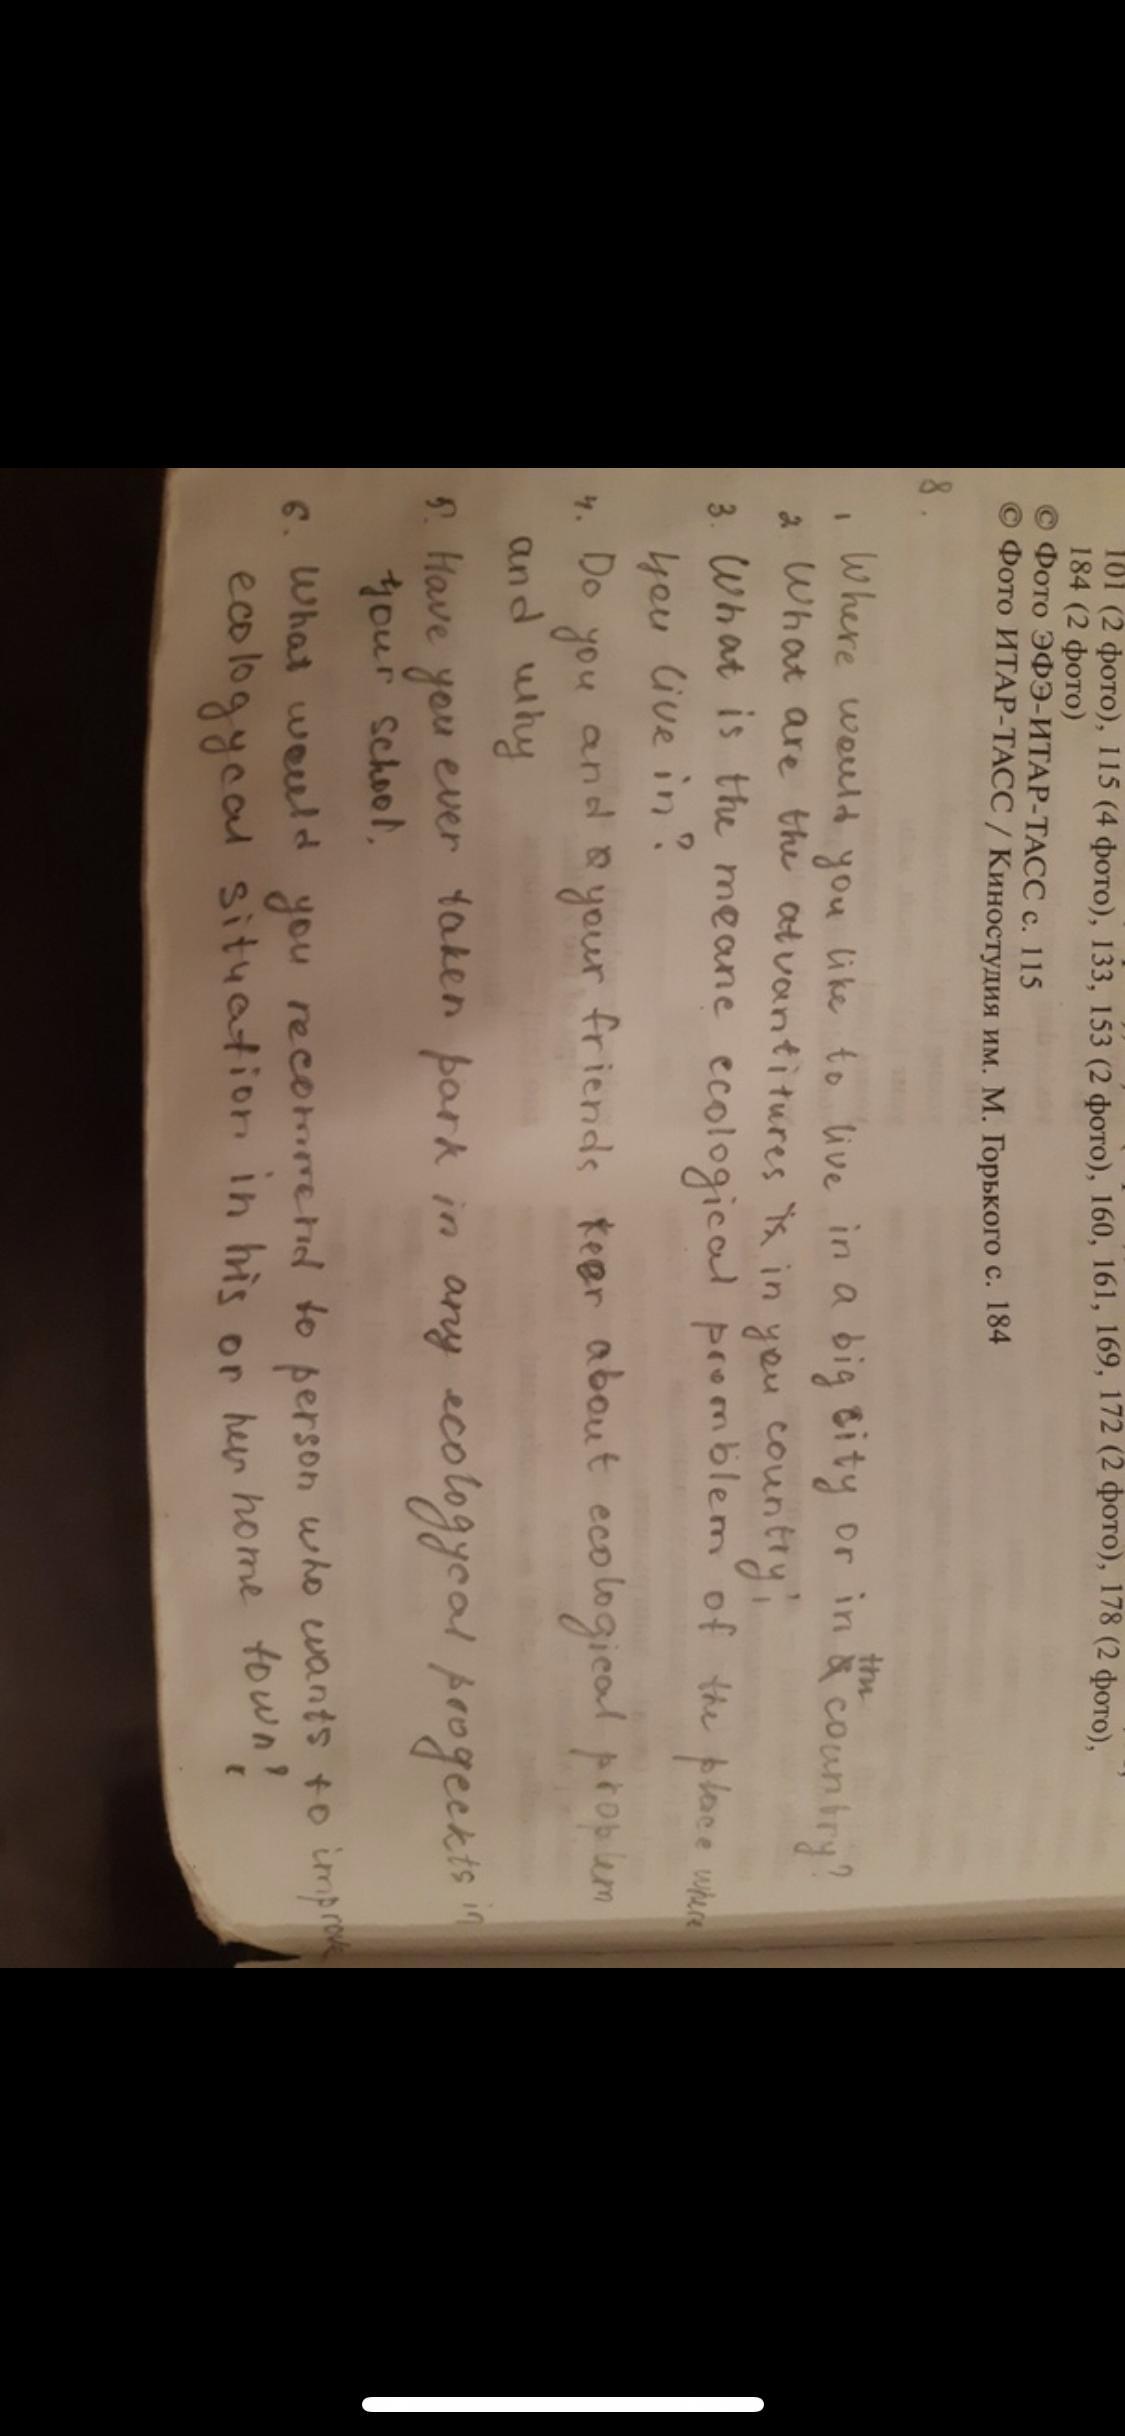 101 (2 фото), 115 (4 фото), 133, 153 (2 фото), 160, 161, 169, 172 (2 фото), 178 (2 фото),
184 (2 фото)
© Фото ЭФЭ-ИТАР-ТАСС с. 115
© Фото ИТАР-ТАСС / Киностудия им. М. Горького с. 184
8.
1 Where would you like to live in a big city or in the country?
2 What are the atvantitures in you country?
3. What is the meane ecological promblem of the place where
you live in?
4. Do you and your friends keer about ecological proplem
and why
5. Have you ever taken park in any ecologycal progeckts in
your school.
6. What would you recommend to person who wants to improve
ecologycal situation in his or her home town?